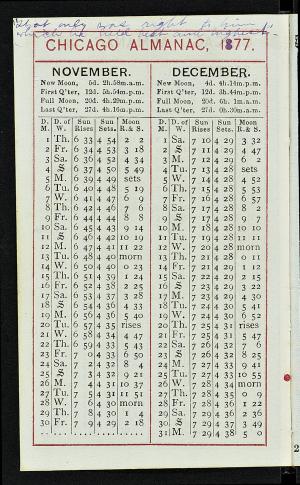 not only was right to him
which he held dear and highest
CHICAGO ALMANAC, 1877.
NOVEMBER.
New Moon, 5d. 2h.58m.a.m.
First Q'ter, 12d. 5h.54m.p.m.
Full Moon, 20d. 4h.29m.p.m.
Last Q'ter, 27d. 4h.16m.p.m.
D. M. D. of W. Sun Rises Sun Sets. Moon R. & S.
1 Th. 6 33 4 54 2 2
2 Fr. 6 34 4 53 3 18
3 Sa. 6 36 4 52 4 34
4 S 6 37 4 50 5 49
5 M. 6 39 4 49 sets
6 Tu. 6 40 4 48 5 19
7 W. 6 41 4 47 6 9
8 Th. 6 42 4 46 7 6
9 Fr. 6 44 4 44 8 8
10 Sa. 6 45 4 43 9 14
11 S 6 46 4 42 10 19
12 M. 6 47 4 41 11 22
13 Tu. 6 48 4 40 morn
14 W. 6 50 4 40 0 23
15 Th. 6 51 4 39 1 24
16 Fr. 6 52 4 38 2 25
17 Sa. 6 53 4 37 3 28
18 S 6 54 4 36 4 33
19 M. 6 56 4 36 5 40
20 Tu. 6 57 4 35 rises
21 W. 6 58 4 34 4 47
22 Th. 6 59 4 33 5 43
23 Fr. 7 0 4 33 6 50
24 Sa. 7 2 4 32 8 4
25 S 7 3 4 32 9 21
26 M. 7 4 4 31 10 37
27 Tu. 7 5 4 31 11 51
28 W. 7 6 4 30 morn
29 Th. 7 8 4 30 1 4
30 Fr. 7 9 4 29 2 18
DECEMBER.
New Moon, 4d. 4h.14m.p.m.
First Q'ter, 12d. 3h.44m.p.m.
Full Moon, 20d. 6h. 1m.a.m.
Last Q'ter, 27d. 0h.30m.a.m.
D. M. D. of W. Sun Rises Sun Sets. Moon R. & S.
1 Sa. 7 10 4 29 3 32
2 S 7 11 4 29 4 47
3 M. 7 12 4 29 6 2
4 Tu. 7 13 4 28 sets
5 W. 7 14 4 28 4 52
6 Th. 7 15 4 28 5 53
7 Fr. 7 16 4 28 6 57
8 Sa. 7 17 4 28 8 2
9 S 7 17 4 28 9 7
10 M. 7 18 4 28 10 10
11 Tu. 7 19 4 28 11 11
12 W. 7 20 4 28 morn
13 Th. 7 21 4 28 0 11
14 Fr. 7 21 4 29 1 12
15 Sa. 7 22 4 29 2 15
16 S 7 23 4 29 3 22
17 M. 7 23 4 29 4 30
18 Tu. 7 24 4 30 5 41
19 W. 7 24 4 30 6 52
20 Th. 7 25 4 31 rises
21 Fr. 7 25 4 31 5 47
22 Sa. 7 26 4 32 7 6
23 S 7 26 4 32 8 25
24 M. 7 27 4 33 9 41
25 Tu. 7 27 4 33 10 55
26 W. 7 28 4 34 morn
27 Th. 7 28 4 35 0 9
28 Fr. 7 28 4 35 1 22
29 Sa. 7 29 4 36 2 36
30 S 7 29 4 37 3 49
31 M. 7 29 4 38 5 0